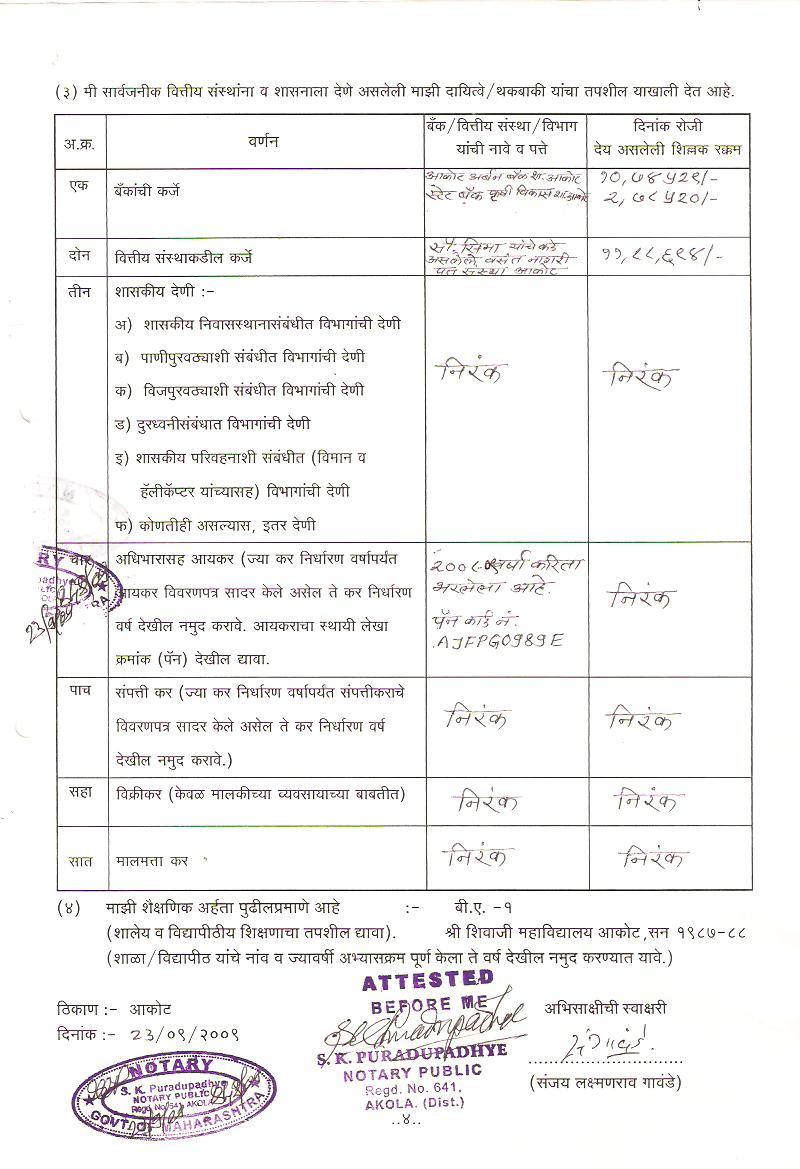 (३) मी सार्वजनीक वित्तीय संस्थांना व शासनाला देणे असलेली माझी दायित्वे/थकबाकी यांचा तपशील याखाली देत आहे.
अ.क्र. वर्णन बँक/वित्तीय संस्था/विभाग यांची नावे व पत्ते दिनांक रोजी देय असलेली शिल्लक रक्कम
एक बँकांची कर्जे आकोट अर्बन बँक शा. आकोट १०,७४५२९/-
स्टेट बँक कृषी विकास शा. आकोट २,७८५२०/-
दोन वित्तीय संस्थाकडील कर्जे सौ. सिमा यांचेकडे ११,८८,६९४/-
असलेले वसंत नागरी
पत संस्था आकोट
तीन शासकीय देणी :-
अ) शासकीय निवासस्थानासंबंधीत विभागांची देणी
ब) पाणीपुरवठ्याशी संबंधीत विभागांची देणी
निरंक निरंक
क) विजपुरवठ्याशी संबंधीत विभागांची देणी
ड) दुरध्वनीसंबंधात विभागांची देणी
इ) शासकीय परिवहनाशी संबंधीत (विमान व
हॅलीकॅप्टर यांच्यासह) विभागांची देणी
फ) कोणतीही असल्यास, इतर देणी
चार अधिभारासह आयकर (ज्या कर निर्धारण वर्षापर्यंत
आयकर विवरणपत्र सादर केले असेल ते कर निर्धारण
वर्ष देखील नमुद करावे. आयकराचा स्थायी लेखा
क्रमांक (पॅन) देखील द्यावा.
करिता
भरलेला आहे. निरंक
पॅन कार्ड नं.
AJFPG0989E
पाच संपत्ती कर (ज्या कर निर्धारण वर्षापर्यंत संपत्तीकराचे
विवरणपत्र सादर केले असेल ते कर निर्धारण वर्ष निरंक निरंक
देखील नमुद करावे.)
सहा विक्रीकर (केवळ मालकीच्या व्यवसायाच्या बाबतीत) निरंक निरंक
सात मालमत्ता कर निरंक निरंक
(४) माझी शैक्षणिक अर्हता पुढीलप्रमाणे आहे :- बी.ए. -१
(शालेय व विद्यापीठीय शिक्षणाचा तपशील द्यावा). श्री शिवाजी महाविद्यालय आकोट,सन १९८७-८८
(शाळा/विद्यापीठ यांचे नांव व ज्यावर्षी अभ्यासक्रम पूर्ण केला ते वर्ष देखील नमुद करण्यात यावे.)
ATTESTED
BEFORE ME
S. K. PURADUPADHYE
NOTARY PUBLIC
Regd. No. 641,
AKOLA. (Dist.)
ठिकाण :- आकोट
दिनांक :- 23/09/२००९
अभिसाक्षीची स्वाक्षरी
(संजय लक्ष्मणराव गावंडे)
NOTARY
S. K. Puradupadhye
NOTARY PUBLIC
Regd. No. 641 AKOLA
GOVT. OF MAHARASHTRA
..४..